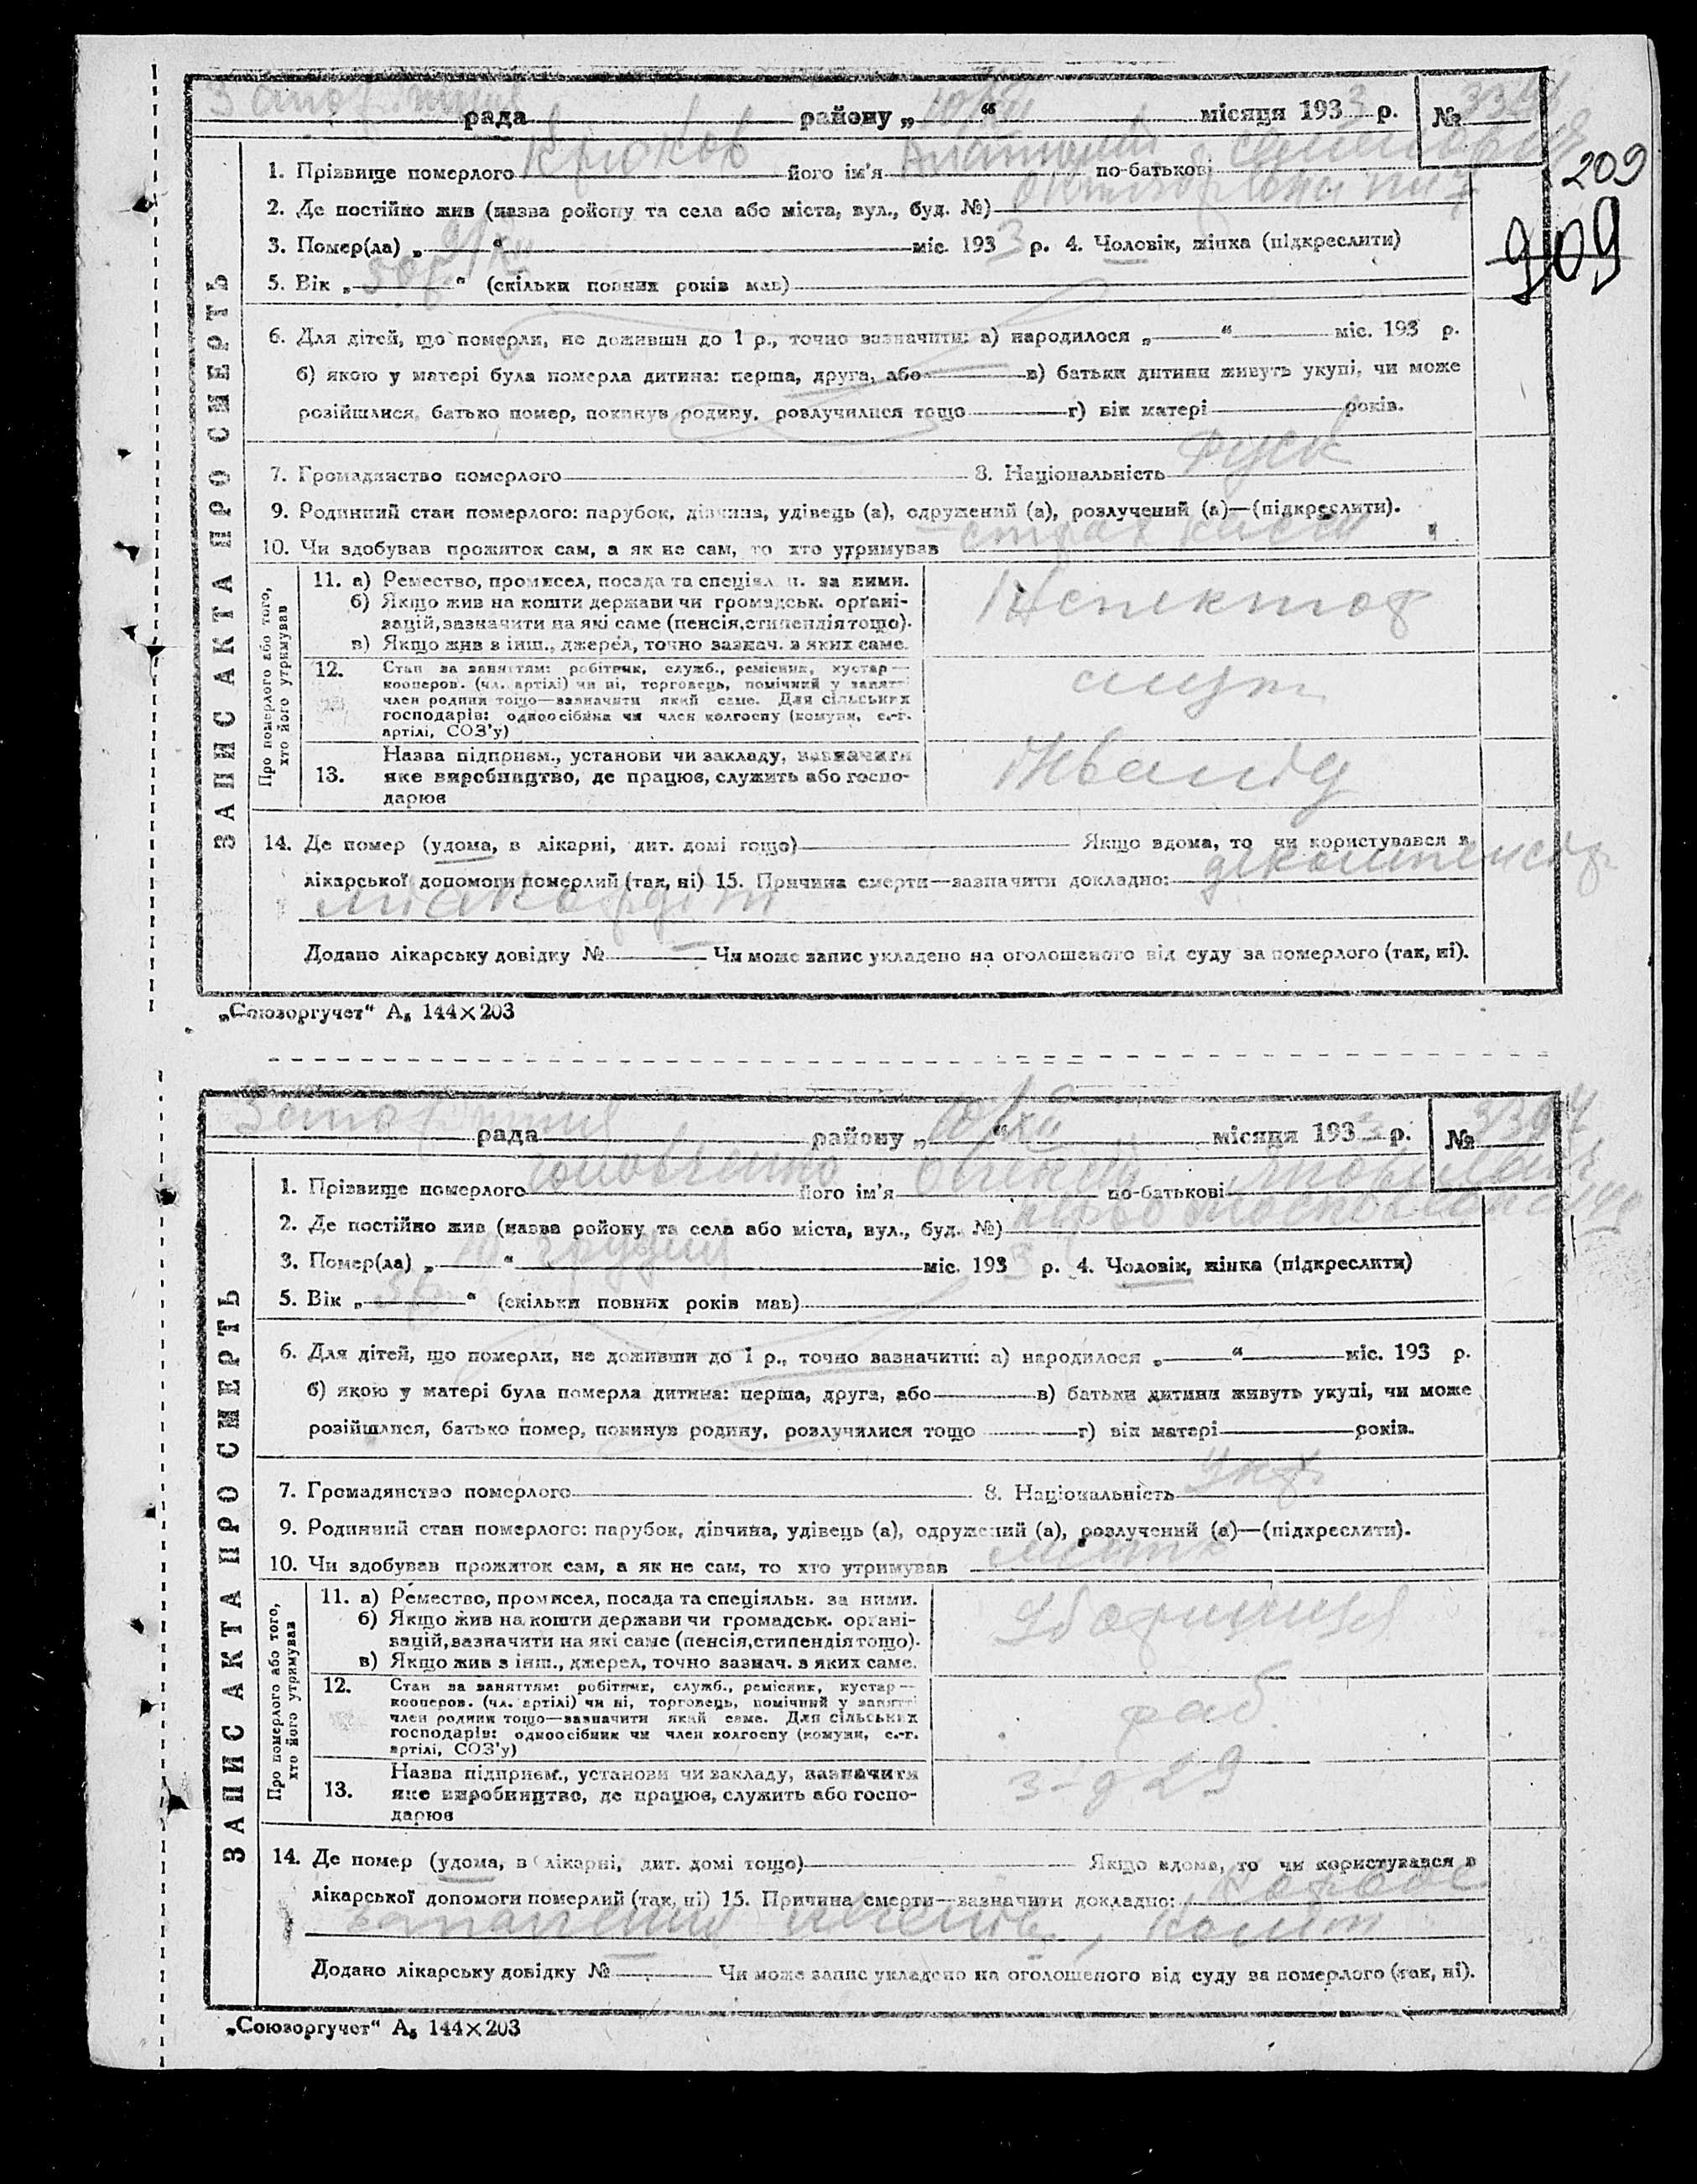 рада районy „10/XII“ місяця 1933 р. №
209
909
1. Прізвище померлого Крюков його ім'я Анатолій по-батькові
2. Де постійно жив (назва ройону та села або міста, вул., буд. №)
3. Помер(ла) „9/XII“ міс. 1933 р. 4. Чоловік, жінка (підкреслити)
5. Вік „50 р.“ (скільки повних років мав)
6. Для дітей, що померли, не доживши до 1 р., точно зазначити: а) народилося „ “ міс. 193 р.
б) якою у матері була померла дитина: перша, друга, або в) батьки дитини живуть укупі, чи може
розійшлися, батько помер, покинув родину, розлучилися тощо г) вік матері років.
7. Громадянство померлого 8. Національність руск
9. Родинний стан померлого: парубок, дівчина, удівець (а), одружений (а), розлучений (а)—(підкреслити).
10. Чи здобував прожиток сам, а як не сам, то хто утримував страх каси
ЗАПИС АКТА ПРО СМЕРТЬ
Про померлого або того,
хто його утримував
11. а) Ремество, промисел, посада та спеціяльн. за ними.
б) Якщо жив на кошти держави чи громадськ. органі-
зацій, зазначити на які саме (пенсія, стипендія тощо).
в) Якщо жив з інш., джерел, точно зазнач. з яких саме.
Інспектор
12. Стан за заняттям: робітник, служб., ремісник, кустар—
кооперов. (чл. артілі) чи ні, торговець, помічний у занятті
член родини тощо—зазначити який саме. Для сільських
господарів: одноосібник чи член колгоспу (комуни, с.-г.
артілі, СОЗ'у)
служ
13. Назва підприєм., установи чи закладу, зазначити
яке виробництво, де працює, служить або госпо-
дарює
Інвалід
14. Де помер (удома, в лікарні, дит. домі тощо) Якщо вдома, то чи користувався в
лікарської допомоги померлий (так, ні) 15. Причина смерти—зазначити докладно: декомпенсір
міокардіт
Додано лікарську довідку № — Чи може запис укладено на оголошеного від суду за померлого (так, ні).
„Союзоргучет“ А₅ 144×203
рада районy „10/XII“ місяця 1933 р. № 3394
1. Прізвище померлого Головченко його ім'я Олексій по-батькові
2. Де постійно жив (назва ройону та села або міста, вул., буд. №)
3. Помер(ла) „10“ грудня міс. 1933 р. 4. Чоловік, жінка (підкреслити)
5. Вік „ “ (скільки повних років мав)
6. Для дітей, що померли, не доживши до 1 р., точно зазначити: а) народилося „ “ міс. 193 р.
б) якою у матері була померла дитина: перша, друга, або в) батьки дитини живуть укупі, чи може
розійшлися, батько помер, покинув родину, розлучилися тощо г) вік матері років.
7. Громадянство померлого 8. Національність Укр.
9. Родинний стан померлого: парубок, дівчина, удівець (а), одружений (а), розлучений (а)—(підкреслити).
10. Чи здобував прожиток сам, а як не сам, то хто утримував
ЗАПИС АКТА ПРО СМЕРТЬ
Про померлого або того,
хто його утримував
11. а) Ремество, промисел, посада та спеціяльн. за ними.
б) Якщо жив на кошти держави чи громадськ. органі-
зацій, зазначити на які саме (пенсія, стипендія тощо).
в) Якщо жив з інш., джерел, точно зазнач. з яких саме.
Уборщиця
12. Стан за заняттям: робітник, служб., ремісник, кустар—
кооперов. (чл. артілі) чи ні, торговець, помічний у занятті
член родини тощо—зазначити який саме. Для сільських
господарів: одноосібник чи член колгоспу (комуни, с.-г.
артілі, СОЗ'у)
раб.
13. Назва підприєм., установи чи закладу, зазначити
яке виробництво, де працює, служить або госпо-
дарює
з-д 29
14. Де помер (удома, в лікарні, дит. домі тощо) Якщо вдома, то чи користувався в
лікарської допомоги померлий (так, ні) 15. Причина смерти—зазначити докладно:
запалення легенів, коліт
Додано лікарську довідку № — Чи може запис укладено на оголошеного від суду за померлого (так, ні).
„Союзоргучет“ А₅ 144×203